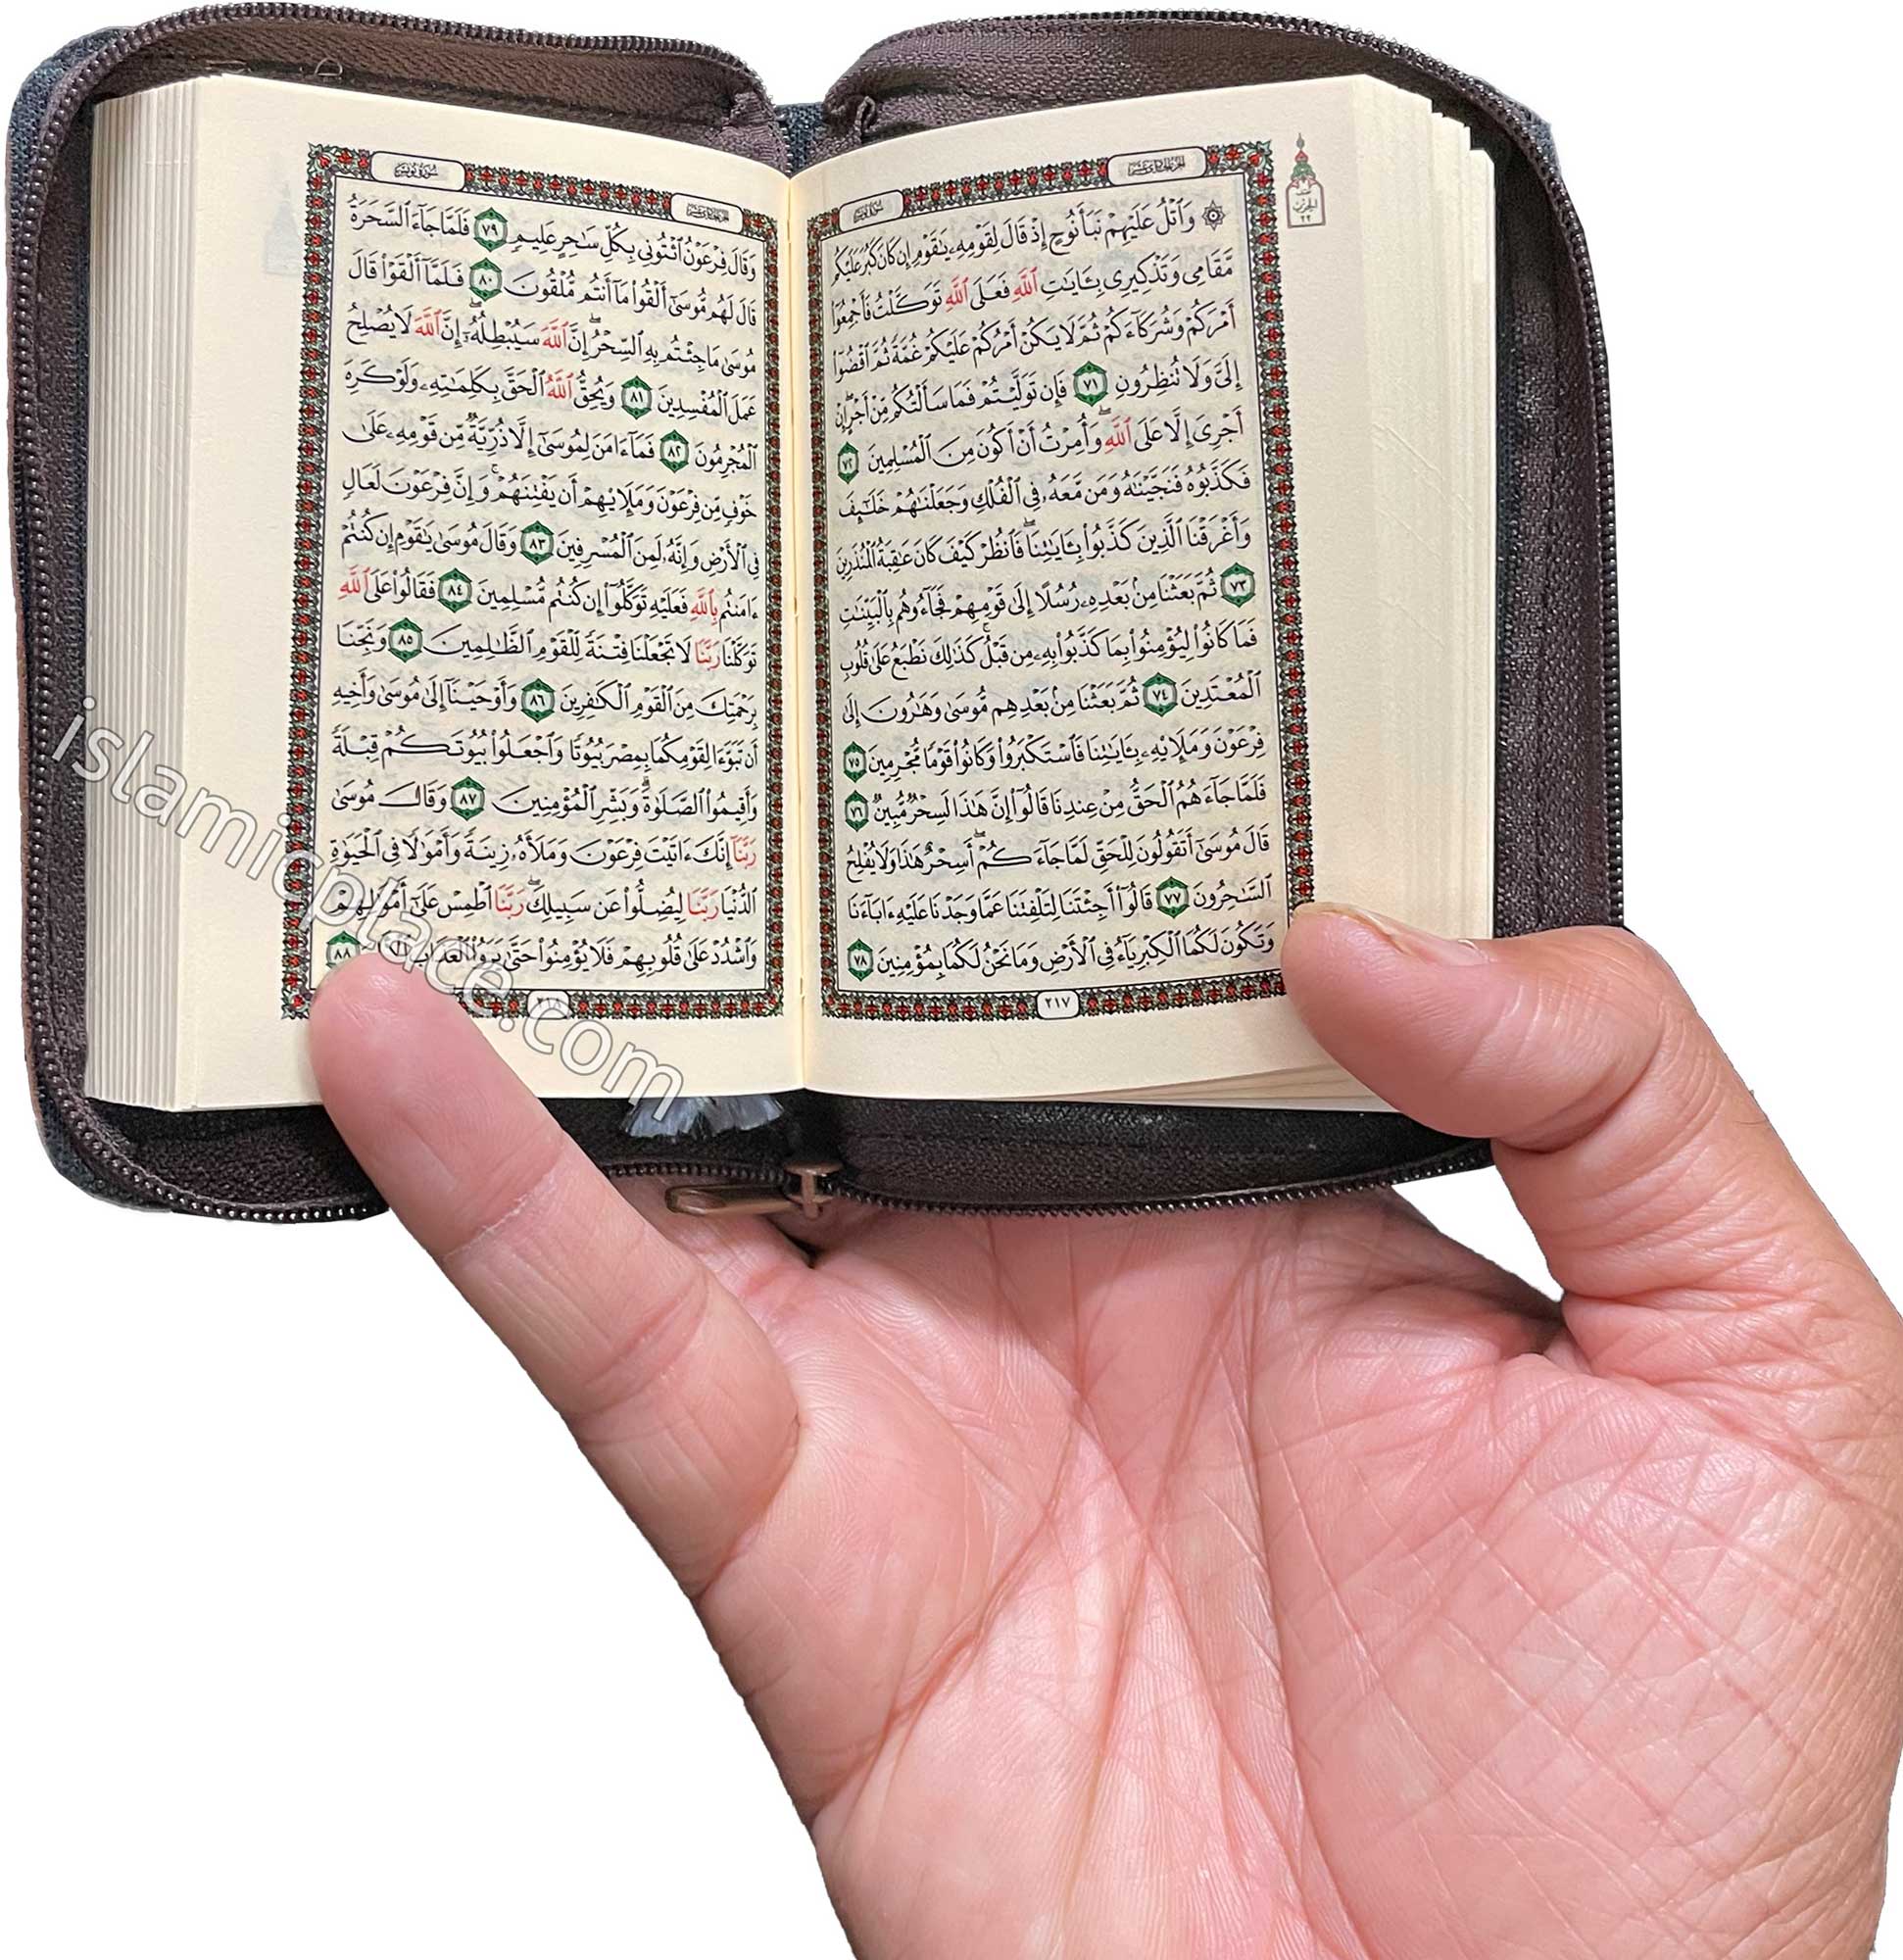 الجزء الحادي عشر
سورة يونس
الحزب
٢٢
۞ وَٱتۡلُ عَلَيۡهِمۡ نَبَأَ نُوحٍ إِذۡ قَالَ لِقَوۡمِهِۦ يَٰقَوۡمِ إِن كَانَ كَبُرَ عَلَيۡكُم
مَّقَامِي وَتَذۡكِيرِي بِـَٔايَٰتِ ٱللَّهِ فَعَلَى ٱللَّهِ تَوَكَّلۡتُ فَأَجۡمِعُوٓاْ
أَمۡرَكُمۡ وَشُرَكَآءَكُمۡ ثُمَّ لَا يَكُنۡ أَمۡرُكُمۡ عَلَيۡكُمۡ غُمَّةٗ ثُمَّ ٱقۡضُوٓاْ
إِلَيَّ وَلَا تُنظِرُونِ ٧١ فَإِن تَوَلَّيۡتُمۡ فَمَا سَأَلۡتُكُم مِّنۡ أَجۡرٍۖ إِنۡ
أَجۡرِيَ إِلَّا عَلَى ٱللَّهِۖ وَأُمِرۡتُ أَنۡ أَكُونَ مِنَ ٱلۡمُسۡلِمِينَ ٧٢
فَكَذَّبُوهُ فَنَجَّيۡنَٰهُ وَمَن مَّعَهُۥ فِي ٱلۡفُلۡكِ وَجَعَلۡنَٰهُمۡ خَلَٰٓئِفَ
وَأَغۡرَقۡنَا ٱلَّذِينَ كَذَّبُواْ بِـَٔايَٰتِنَاۖ فَٱنظُرۡ كَيۡفَ كَانَ عَٰقِبَةُ ٱلۡمُنذَرِينَ
٧٣ ثُمَّ بَعَثۡنَا مِنۢ بَعۡدِهِۦ رُسُلًا إِلَىٰ قَوۡمِهِمۡ فَجَآءُوهُم بِٱلۡبَيِّنَٰتِ
فَمَا كَانُواْ لِيُؤۡمِنُواْ بِمَا كَذَّبُواْ بِهِۦ مِن قَبۡلُۚ كَذَٰلِكَ نَطۡبَعُ عَلَىٰ قُلُوبِ
ٱلۡمُعۡتَدِينَ ٧٤ ثُمَّ بَعَثۡنَا مِنۢ بَعۡدِهِم مُّوسَىٰ وَهَٰرُونَ إِلَىٰ
فِرۡعَوۡنَ وَمَلَإِيْهِۦ بِـَٔايَٰتِنَا فَٱسۡتَكۡبَرُواْ وَكَانُواْ قَوۡمٗا مُّجۡرِمِينَ ٧٥
فَلَمَّا جَآءَهُمُ ٱلۡحَقُّ مِنۡ عِندِنَا قَالُوٓاْ إِنَّ هَٰذَا لَسِحۡرٞ مُّبِينٞ ٧٦
قَالَ مُوسَىٰٓ أَتَقُولُونَ لِلۡحَقِّ لَمَّا جَآءَكُمۡۖ أَسِحۡرٌ هَٰذَا وَلَا يُفۡلِحُ
ٱلسَّٰحِرُونَ ٧٧ قَالُوٓاْ أَجِئۡتَنَا لِتَلۡفِتَنَا عَمَّا وَجَدۡنَا عَلَيۡهِ ءَابَآءَنَا
وَتَكُونَ لَكُمَا ٱلۡكِبۡرِيَآءُ فِي ٱلۡأَرۡضِ وَمَا نَحۡنُ لَكُمَا بِمُؤۡمِنِينَ ٧٨
٢١٧
الجزء الحادي عشر
سورة يونس
وَقَالَ فِرۡعَوۡنُ ٱئۡتُونِي بِكُلِّ سَٰحِرٍ عَلِيمٖ ٧٩ فَلَمَّا جَآءَ ٱلسَّحَرَةُ
قَالَ لَهُم مُّوسَىٰٓ أَلۡقُواْ مَآ أَنتُم مُّلۡقُونَ ٨٠ فَلَمَّآ أَلۡقَوۡاْ قَالَ
مُوسَىٰ مَا جِئۡتُم بِهِ ٱلسِّحۡرُۖ إِنَّ ٱللَّهَ سَيُبۡطِلُهُۥٓ إِنَّ ٱللَّهَ لَا يُصۡلِحُ
عَمَلَ ٱلۡمُفۡسِدِينَ ٨١ وَيُحِقُّ ٱللَّهُ ٱلۡحَقَّ بِكَلِمَٰتِهِۦ وَلَوۡ كَرِهَ
ٱلۡمُجۡرِمُونَ ٨٢ فَمَآ ءَامَنَ لِمُوسَىٰٓ إِلَّا ذُرِّيَّةٞ مِّن قَوۡمِهِۦ عَلَىٰ
خَوۡفٖ مِّن فِرۡعَوۡنَ وَمَلَإِيْهِمۡ أَن يَفۡتِنَهُمۡۚ وَإِنَّ فِرۡعَوۡنَ لَعَالٖ
فِي ٱلۡأَرۡضِ وَإِنَّهُۥ لَمِنَ ٱلۡمُسۡرِفِينَ ٨٣ وَقَالَ مُوسَىٰ يَٰقَوۡمِ إِن كُنتُمۡ
ءَامَنتُم بِٱللَّهِ فَعَلَيۡهِ تَوَكَّلُوٓاْ إِن كُنتُم مُّسۡلِمِينَ ٨٤ فَقَالُواْ عَلَى ٱللَّهِ
تَوَكَّلۡنَا رَبَّنَا لَا تَجۡعَلۡنَا فِتۡنَةٗ لِّلۡقَوۡمِ ٱلظَّٰلِمِينَ ٨٥ وَنَجِّنَا
بِرَحۡمَتِكَ مِنَ ٱلۡقَوۡمِ ٱلۡكَٰفِرِينَ ٨٦ وَأَوۡحَيۡنَآ إِلَىٰ مُوسَىٰ وَأَخِيهِ
أَن تَبَوَّءَا لِقَوۡمِكُمَا بِمِصۡرَ بُيُوتٗا وَٱجۡعَلُواْ بُيُوتَكُمۡ قِبۡلَةٗ
وَأَقِيمُواْ ٱلصَّلَوٰةَۗ وَبَشِّرِ ٱلۡمُؤۡمِنِينَ ٨٧ وَقَالَ مُوسَىٰ
رَبَّنَآ إِنَّكَ ءَاتَيۡتَ فِرۡعَوۡنَ وَمَلَأَهُۥ زِينَةٗ وَأَمۡوَٰلٗا فِي ٱلۡحَيَوٰةِ
ٱلدُّنۡيَا رَبَّنَا لِيُضِلُّواْ عَن سَبِيلِكَۖ رَبَّنَا ٱطۡمِسۡ عَلَىٰٓ أَمۡوَٰلِهِمۡ
وَٱشۡدُدۡ عَلَىٰ قُلُوبِهِمۡ فَلَا يُؤۡمِنُواْ حَتَّىٰ يَرَوُاْ ٱلۡعَذَابَ ٨٨
islamicplace.com